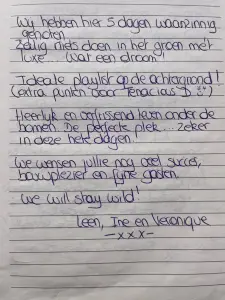 Wij hebben hier 5 dagen waanzinnig
genoten.
Zalig niets doen in het groen met
luxe... Wat een droom!
Ideale playlist op de achtergrond!
(extra punten door Tenacious D :))
Heerlijk en verfrissend leven onder de
bomen. De perfecte plek... Zeker
in deze hete dagen!
We wensen jullie nog veel succes,
bouwplezier en fijne gasten.
We will stay wild!
Leen, Ine en Veronique
-xxx-